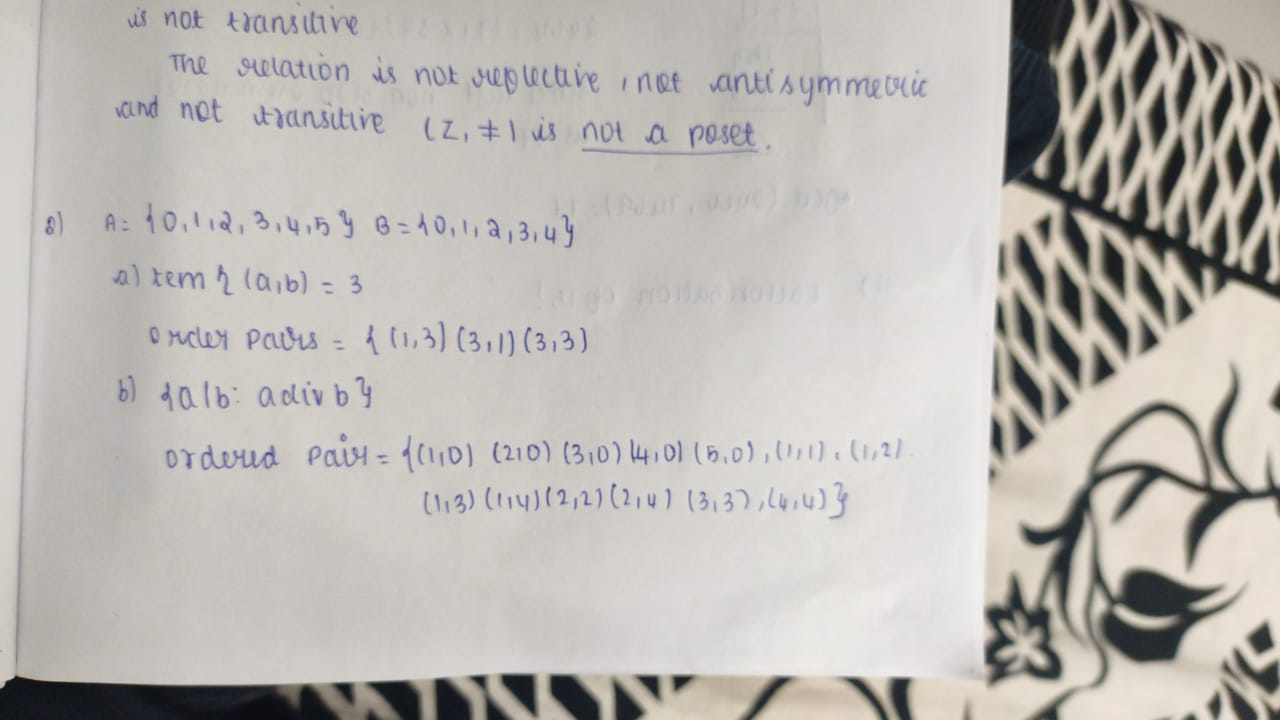 is not transitive
The relation is not reflective, not antisymmetric
and not transitive (Z, ≠) is not a poset.
2) A = {0,1,2,3,4,5} B = {0,1,2,3,4}
a) (a,b) = 3
order pairs = { (1,3) (3,1) (3,3)
b) {a|b: a div b}
ordered pair = {(1,0) (2,0) (3,0) (4,0) (5,0), (1,1), (1,2)
(1,3) (1,4) (2,2) (2,4) (3,3), (4,4)}